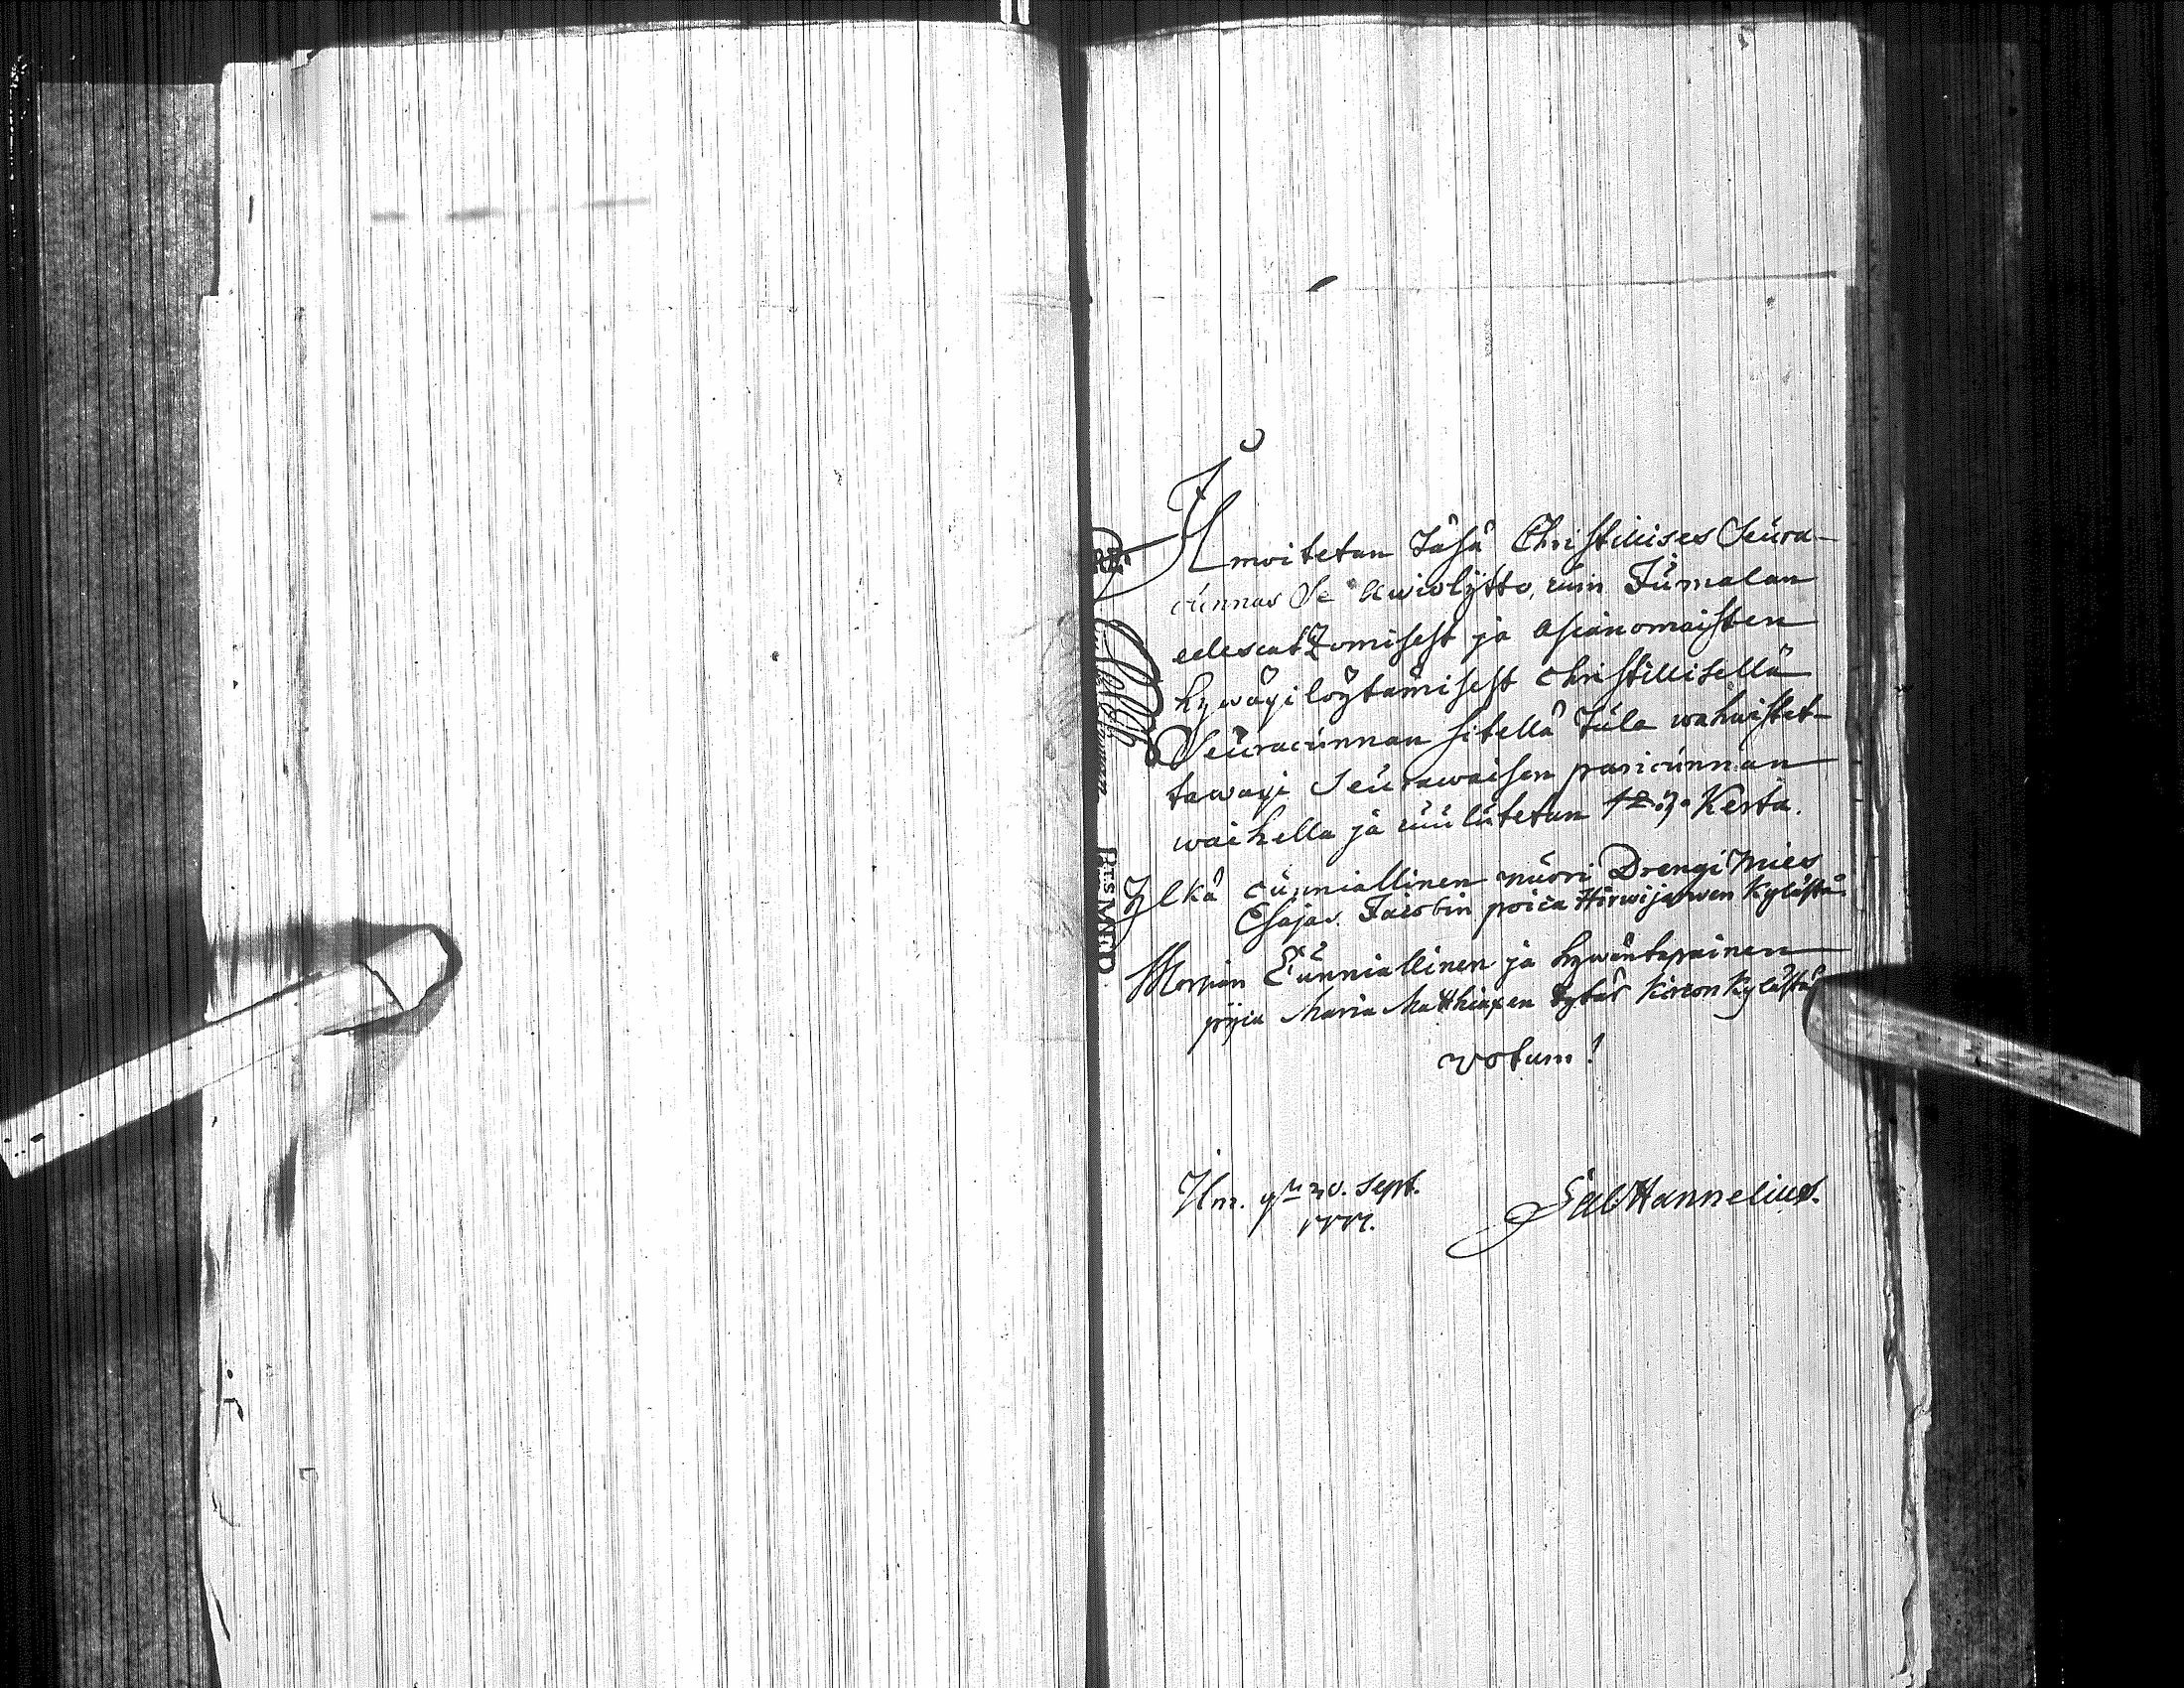 Ilmoitetan Täsä Christillises Seura-
cunnas Se Awioliitto, cuin Jumalan
edescatzomisest ja Asianomaisten
hywäxilöytämisest christillisellä
Seuracunnan sitellä Tule wahwistet-
tawaxi Seurawaisen pariscunnan
waihella ja cuulutetan 1. 2. 3. Kerta.
Yl kä Cunniallinen nuori Drengi Mies
Esajas Jacobin poica Hirwijarwen Kylästä
Morsian Cunniallinen ja hywäntapainen
pijca Maria Matthiaxen tytär Kircon Kylästä
votum!
Ilm. 30. Sept.
Gab Hannelius.